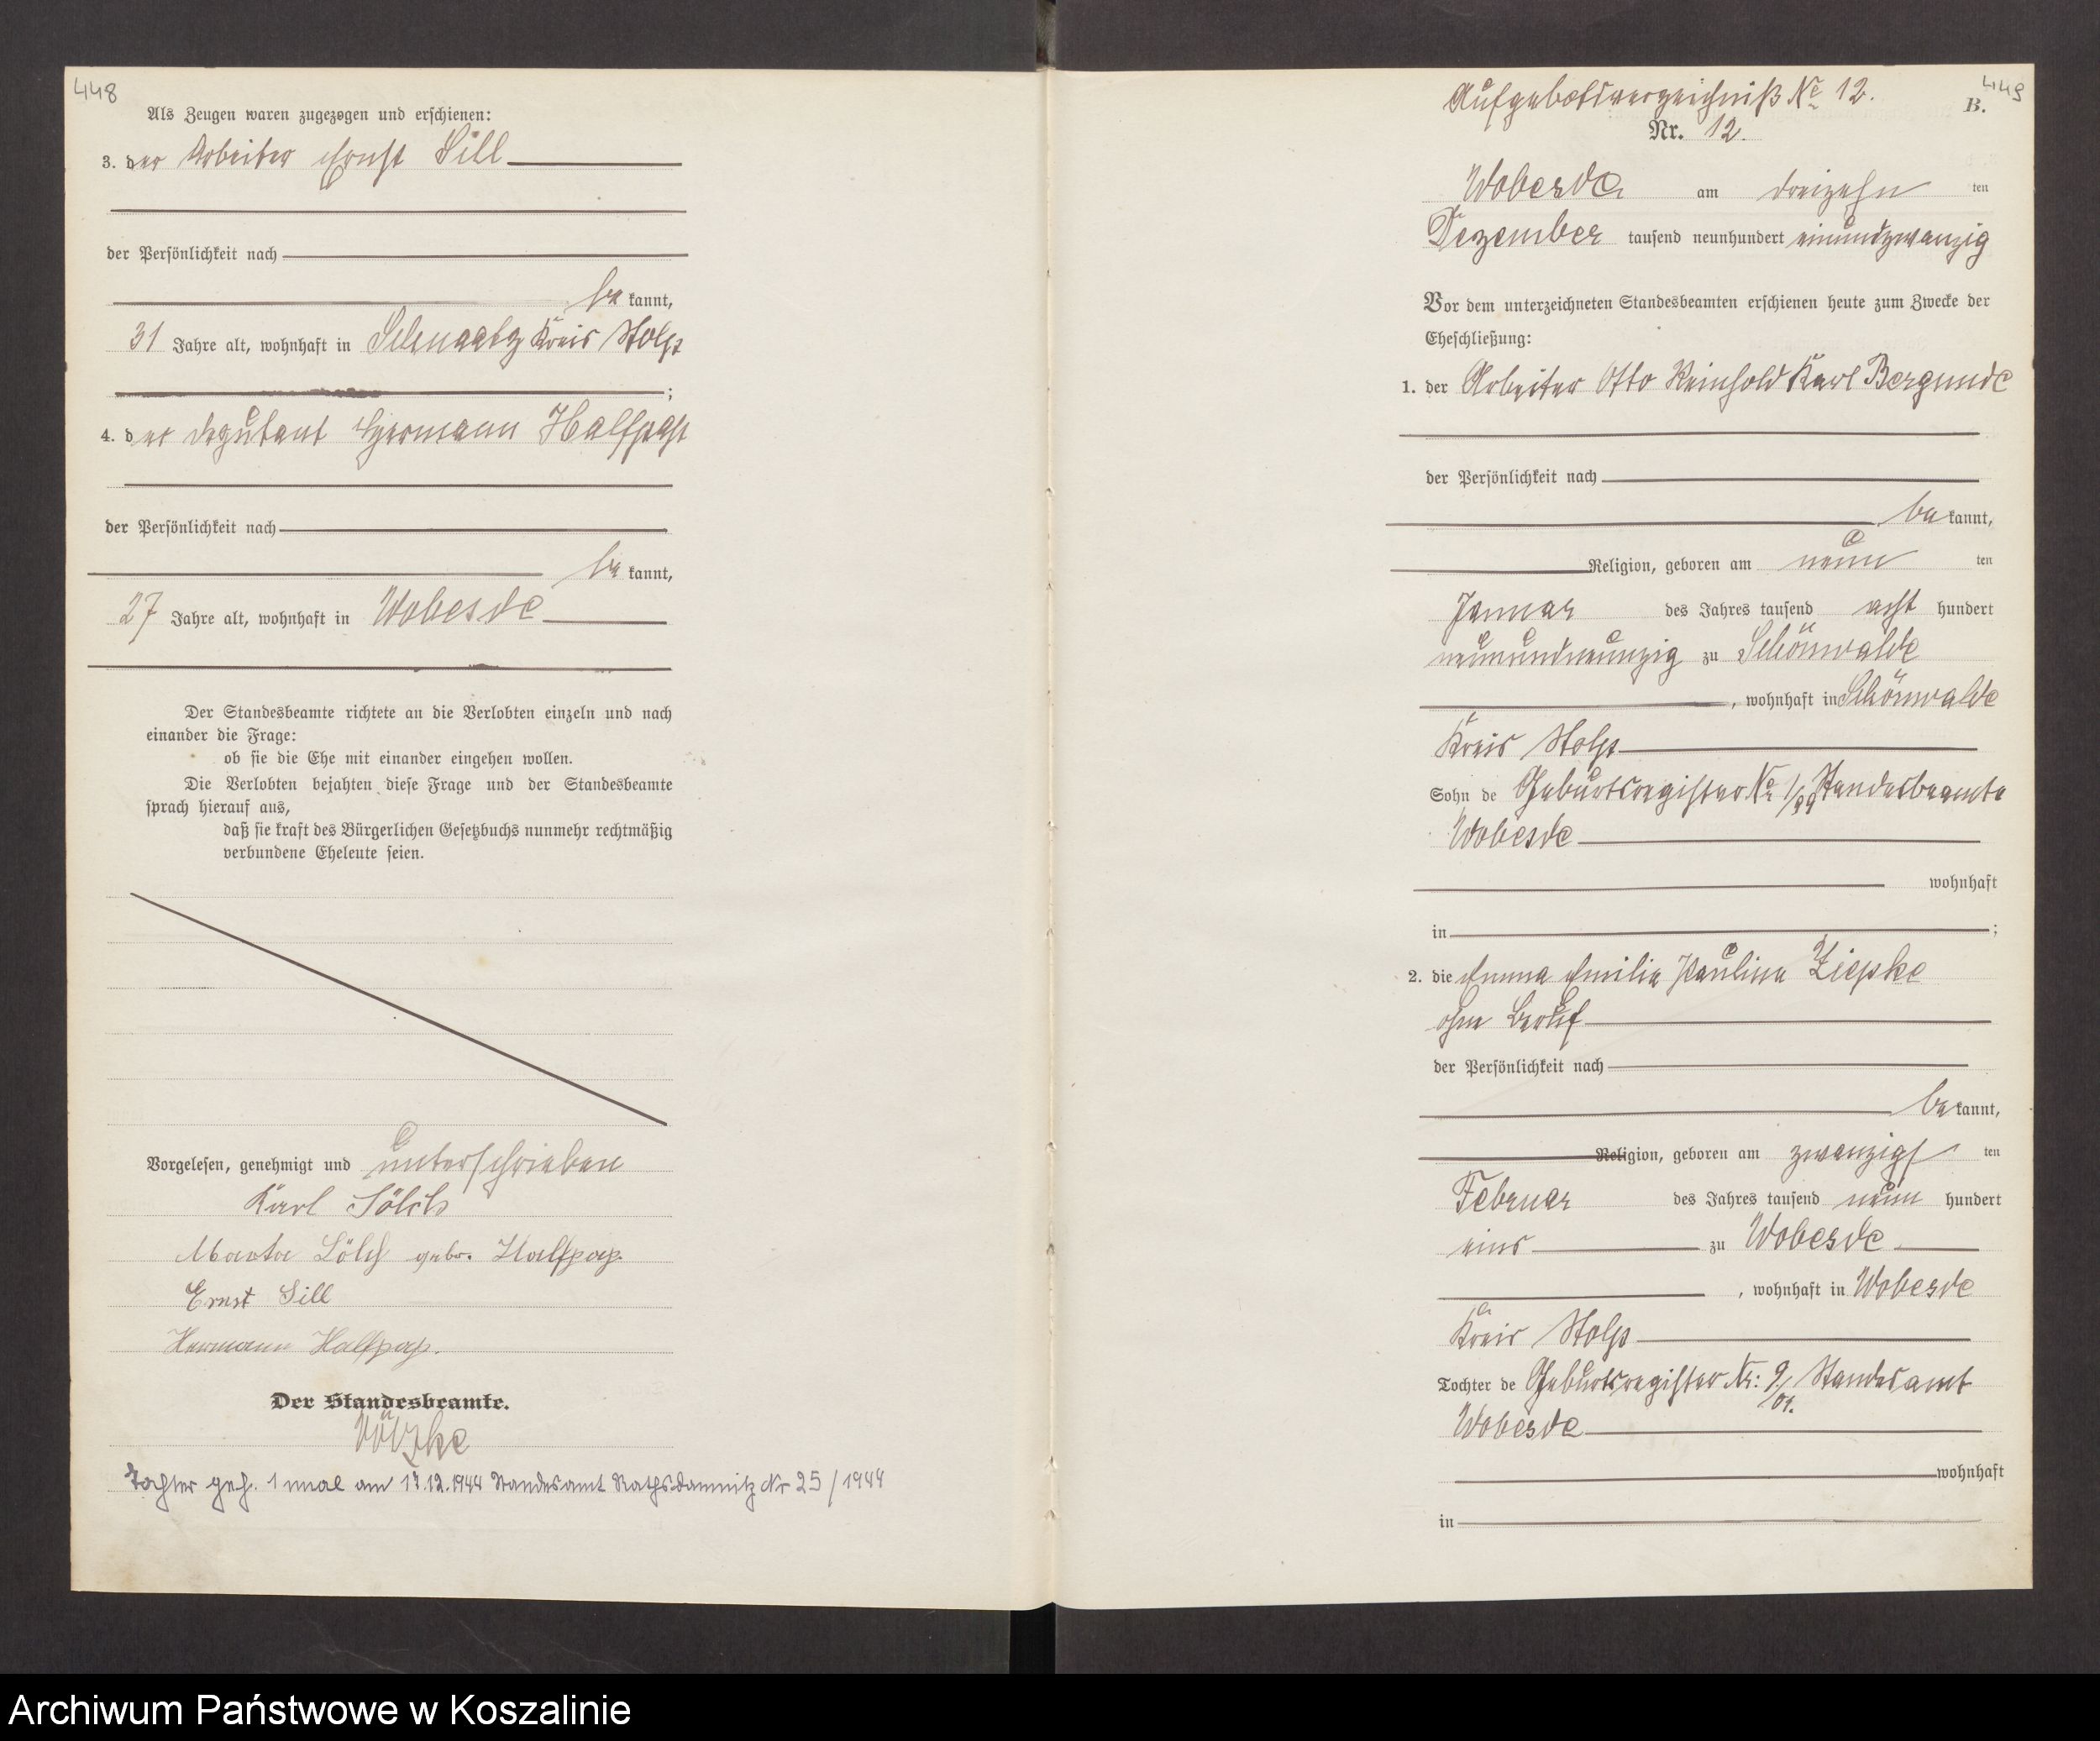 448
Als Zeugen waren zugezogen und erschienen:
3. der Arbeiter Ernst Sill
der Persönlichkeit nach
be kannt,
31 Jahre alt, wohnhaft in Schmaatz Kreis Stolp
;
4. der Deputant Hermann Halfpap
der Persönlichkeit nach
be kannt,
27 Jahre alt, wohnhaft in Wobesde
Der Standesbeamte richtete an die Verlobten einzeln und nach
einander die Frage:
ob sie die Ehe mit einander eingehen wollen.
Die Verlobten bejahten diese Frage und der Standesbeamte
sprach hierauf aus,
daß sie kraft des Bürgerlichen Gesetzbuchs nunmehr rechtmäßig
verbundene Eheleute seien.
Vorgelesen, genehmigt und unterschrieben
Karl
geb. Halfpap
Ernst Sill
Hermann Halfpap.
Der Standesbeamte.
Tochter geh. 1 mal am 17.12.1944 Standesamt Rathsdamnitz Nr 25/1944
449
Aufgebotsverzeichniß No 12.
B.
Nr. 12.
Wobesde am dreizehn ten
Dezember tausend neunhundert einundzwanzig
Vor dem unterzeichneten Standesbeamten erschienen heute zum Zwecke der
Eheschließung:
1. der Arbeiter Otto Reinhold Karl Bergunde
der Persönlichkeit nach
be kannt,
Religion, geboren am neun ten
Januar des Jahres tausend acht hundert
neunundneunzig zu Schönwalde
, wohnhaft in Schönwalde
Kreis Stolp
Sohn de Geburtsregister No 1/99 Standesbeamte
Wobesde
wohnhaft
in ;
2. die Emma Emilie Pauline Ziepke
ohne Beruf
der Persönlichkeit nach
be kannt,
Religion, geboren am zwanzigst ten
Februar des Jahres tausend neun hundert
eins zu Wobesde
, wohnhaft in Wobesde
Kreis Stolp
Tochter de Geburtsregister Nr: 9/01. Standesamt
Wobesde
wohnhaft
in
Archiwum Państwowe w Koszalinie